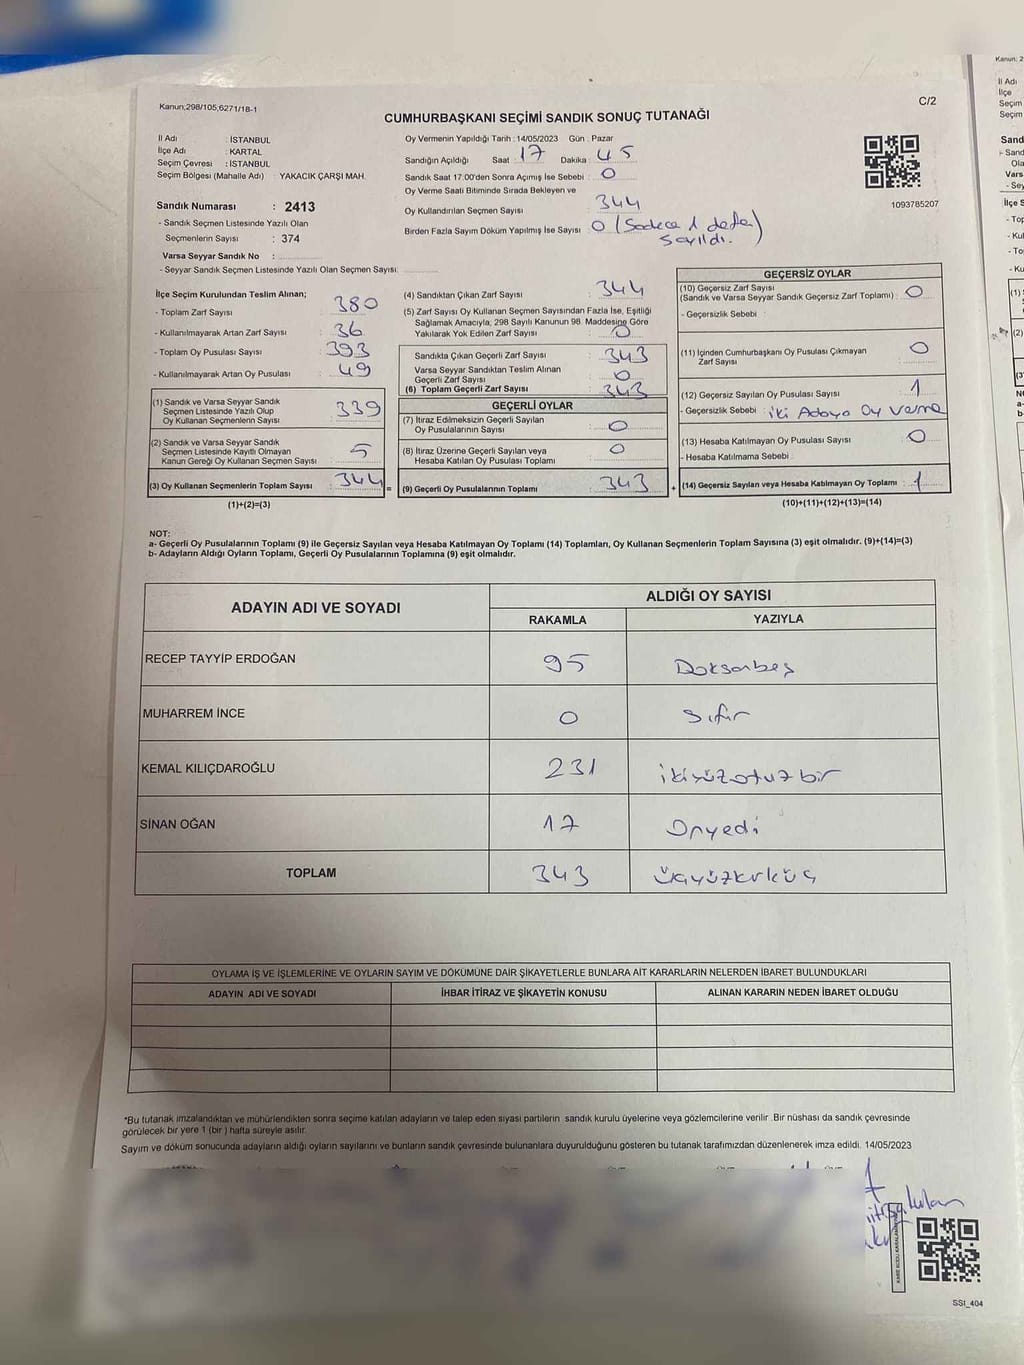 Kanun;298/105,6271/18-1
C/2
CUMHURBAŞKANI SEÇİMİ SANDIK SONUÇ TUTANAĞI
İl Adı : İSTANBUL
İlçe Adı : KARTAL
Seçim Çevresi : İSTANBUL
Seçim Bölgesi (Mahalle Adı) : YAKACIK ÇARŞI MAH.
Sandık Numarası : 2413
- Sandık Seçmen Listesinde Yazılı Olan
Seçmenlerin Sayısı : 374
Varsa Seyyar Sandık No :
- Seyyar Sandık Seçmen Listesinde Yazılı Olan Seçmen Sayısı:
Oy Vermenin Yapıldığı Tarih : 14/05/2023 Gün : Pazar
Sandığın Açıldığı Saat : 17 Dakika : 45
Sandık Saat 17:00'den Sonra Açımış İse Sebebi : 0
Oy Verme Saati Bitiminde Sırada Bekleyen ve
Oy Kullandırılan Seçmen Sayısı 344
Birden Fazla Sayım Döküm Yapılmış İse Sayısı 0 (Sadece 1 defa
sayıldı.)
1093785207
İlçe Seçim Kurulundan Teslim Alınan;
- Toplam Zarf Sayısı : 380
- Kullanılmayarak Artan Zarf Sayısı : 36
- Toplam Oy Pusulası Sayısı : 393
- Kullanılmayarak Artan Oy Pusulası : 49
(1) Sandık ve Varsa Seyyar Sandık
Seçmen Listesinde Yazılı Olup
Oy Kullanan Seçmenlerin Sayısı : 339
(2) Sandık ve Varsa Seyyar Sandık
Seçmen Listesinde Kayıtlı Olmayan
Kanun Gereği Oy Kullanan Seçmen Sayısı : 5
(3) Oy Kullanan Seçmenlerin Toplam Sayısı : 344
(1)+(2)=(3)
=
(4) Sandıktan Çıkan Zarf Sayısı : 344
(5) Zarf Sayısı Oy Kullanan Seçmen Sayısından Fazla İse, Eşitliği
Sağlamak Amacıyla, 298 Sayılı Kanunun 98. Maddesine Göre
Yakılarak Yok Edilen Zarf Sayısı : 0
Sandıkta Çıkan Geçerli Zarf Sayısı : 343
Varsa Seyyar Sandıktan Teslim Alınan
Geçerli Zarf Sayısı : 0
(6) Toplam Geçerli Zarf Sayısı : 343
GEÇERLİ OYLAR
(7) İtiraz Edilmeksizin Geçerli Sayılan
Oy Pusulalarının Sayısı : 0
(8) İtiraz Üzerine Geçerli Sayılan veya
Hesaba Katılan Oy Pusulası Toplamı : 0
(9) Geçerli Oy Pusulalarının Toplamı : 343
+
GEÇERSİZ OYLAR
(10) Geçersiz Zarf Sayısı
(Sandık ve Varsa Seyyar Sandık Geçersiz Zarf Toplamı) : 0
- Geçersizlik Sebebi :
(11) İçinden Cumhurbaşkanı Oy Pusulası Çıkmayan
Zarf Sayısı : 0
(12) Geçersiz Sayılan Oy Pusulası Sayısı : 1
- Geçersizlik Sebebi : İki Adaya Oy Verme
(13) Hesaba Katılmayan Oy Pusulası Sayısı : 0
- Hesaba Katılmama Sebebi :
(14) Geçersiz Sayılan veya Hesaba Katılmayan Oy Toplamı : 1
(10)+(11)+(12)+(13)=(14)
NOT:
a- Geçerli Oy Pusulalarının Toplamı (9) ile Geçersiz Sayılan veya Hesaba Katılmayan Oy Toplamı (14) Toplamları, Oy Kullanan Seçmenlerin Toplam Sayısına (3) eşit olmalıdır. (9)+(14)=(3)
b- Adayların Aldığı Oyların Toplamı, Geçerli Oy Pusulalarının Toplamına (9) eşit olmalıdır.
ADAYIN ADI VE SOYADI
ALDIĞI OY SAYISI
RAKAMLA YAZIYLA
RECEP TAYYİP ERDOĞAN 95 Doksanbeş
MUHARREM İNCE 0 Sıfır
KEMAL KILIÇDAROĞLU 231 ikiyüzotuzbir
SİNAN OĞAN 17 Onyedi
TOPLAM 343 üçyüzkırküç
OYLAMA İŞ VE İŞLEMLERİNE VE OYLARIN SAYIM VE DÖKÜMÜNE DAİR ŞİKAYETLERLE BUNLARA AİT KARARLARIN NELERDEN İBARET BULUNDUKLARI
ADAYIN ADI VE SOYADI İHBAR İTİRAZ VE ŞİKAYETİN KONUSU ALINAN KARARIN NEDEN İBARET OLDUĞU
*Bu tutanak imzalandıktan ve mühürlendikten sonra seçime katılan adayların ve talep eden siyasi partilerin sandık kurulu üyelerine veya gözlemcilerine verilir .Bir nüshası da sandık çevresinde
görülecek bir yere 1 (bir ) hafta süreyle asılır.
Sayım ve döküm sonucunda adayların aldığı oyların sayılarını ve bunların sandık çevresinde bulunanlara duyurulduğunu gösteren bu tutanak tarafımızdan düzenlenerek imza edildi. 14/05/2023
SSI_404